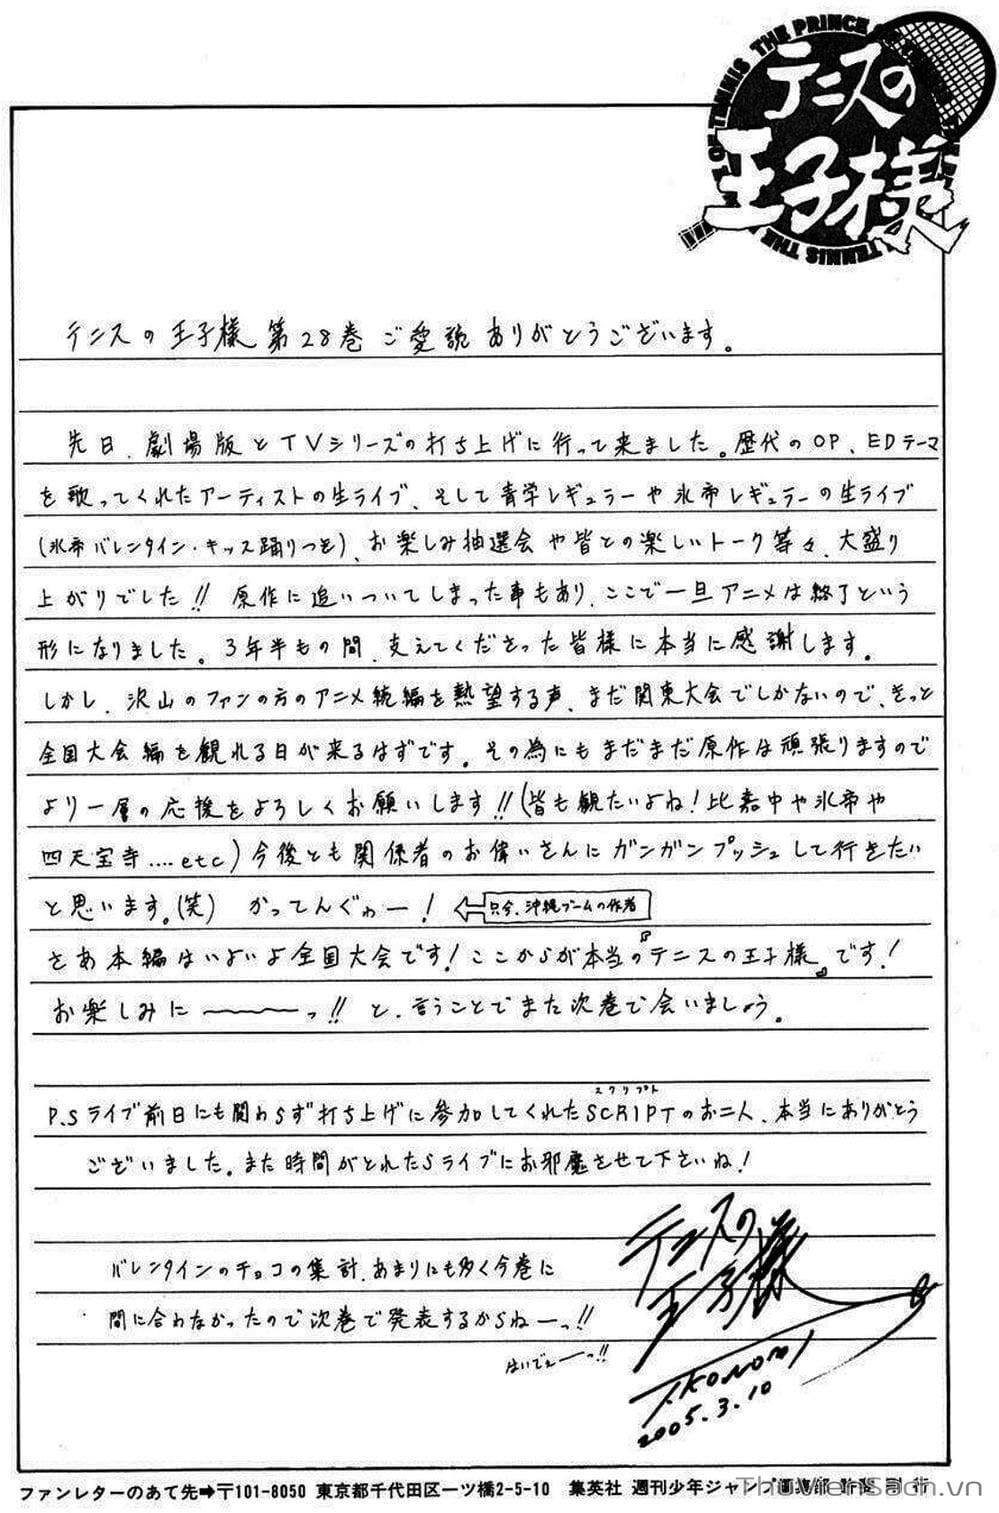 テニスの
王子様
THE PRINCE OF TENNIS
テニスの王子様 第28巻 ご愛読ありがとうございます。
先日、劇場版とTVシリーズの打ち上げに行って来ました。歴代のOP、EDテーマ
を歌ってくれたアーティストの生ライブ、そして青学レギュラーや氷帝レギュラーの生ライブ
(氷帝バレンタイン・キッス踊りつき)、お楽しみ抽選会や皆との楽しいトーク等々、大盛り
上がりでした!! 原作に追いついてしまった事もあり、ここで一旦アニメは終了という
形になりました。3年半もの間、支えてくださった皆様に本当に感謝します。
しかし、沢山のファンの方のアニメ続編を熱望する声、まだ関東大会でしかないので、きっと
全国大会編を観れる日が来るはずです。その為にもまだまだ原作は頑張りますので
より一層の応援をよろしくお願いします!!(皆も観たいよね!比嘉中や氷帝や
四天宝寺....etc)今後とも関係者のお偉いさんにガンガンプッシュして行きたい
と思います。(笑) かってんぐゎー! ⇐只今、沖縄ブームの作者
さあ本編はいよいよ全国大会です!ここからが本当の『テニスの王子様』です!
お楽しみに〜〜〜っ!! と、言うことでまた次巻で会いましょう。
P.Sライブ前日にも関わらず打ち上げに参加してくれたSCRIPTのお二人、本当にありがとう
スクリプト
ございました。また時間がとれたらライブにお邪魔させて下さいね!
バレンタインのチョコの集計、あまりにも多く今巻に
間に合わなかったので次巻で発表するからねーっ!!
はいでぇーっ!!
テニスの
王子様
T.KONOMI
2005.3.10
ファンレターのあて先➡〒101-8050 東京都千代田区一ツ橋2-5-10 集英社 週刊少年ジャンプ編集部 許斐 剛 行
ThuVienSach.vn